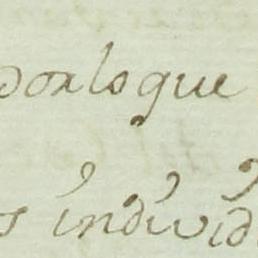 donlo que
s individ